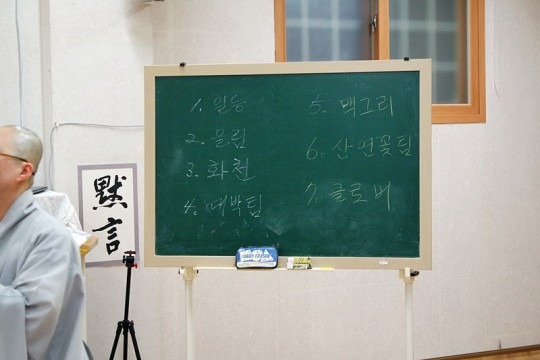 1. 일등
2. 울림
3. 화천
4. 대박팀
5. 백그리
6. 산연꽃팀
7. 클로버
默言